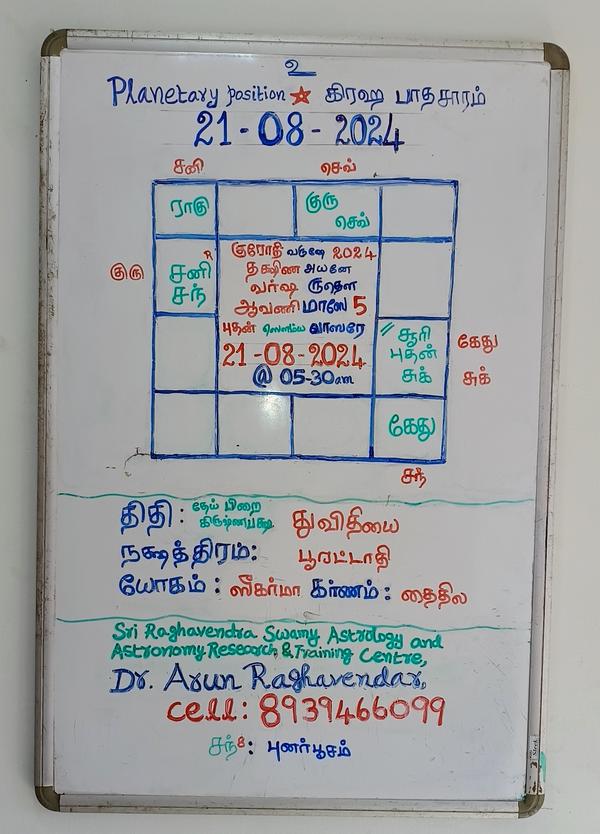 உ
Planetary position ★ கிரஹ பாதசாரம்
21-08-2024
சனி
செவ்
ராகு
குரு
செவ்
குரு
சனி R
சந்
குரோதி வருஷே 2024
தக்ஷிண அயனே
வர்ஷ ருதௌ
ஆவணி மாஸே 5
புதன் ஸௌம்ய வாஸரே
21-08-2024
@ 05-30am
// சூரி
புதன்
சுக்
கேது
சுக்
கேது
சந்
திதி: தேய் பிறை
கிருஷ்ணபக்ஷ துவிதியை
நக்ஷத்திரம்: பூரட்டாதி
யோகம்: ஸீகர்மா கர்ணம்: தைதில
Sri Raghavendra Swamy Astrology and
Astronomy Research & Training Centre,
Dr. Arun Raghavendar,
cell: 8939466099
சந் 8: புனர்பூசம்